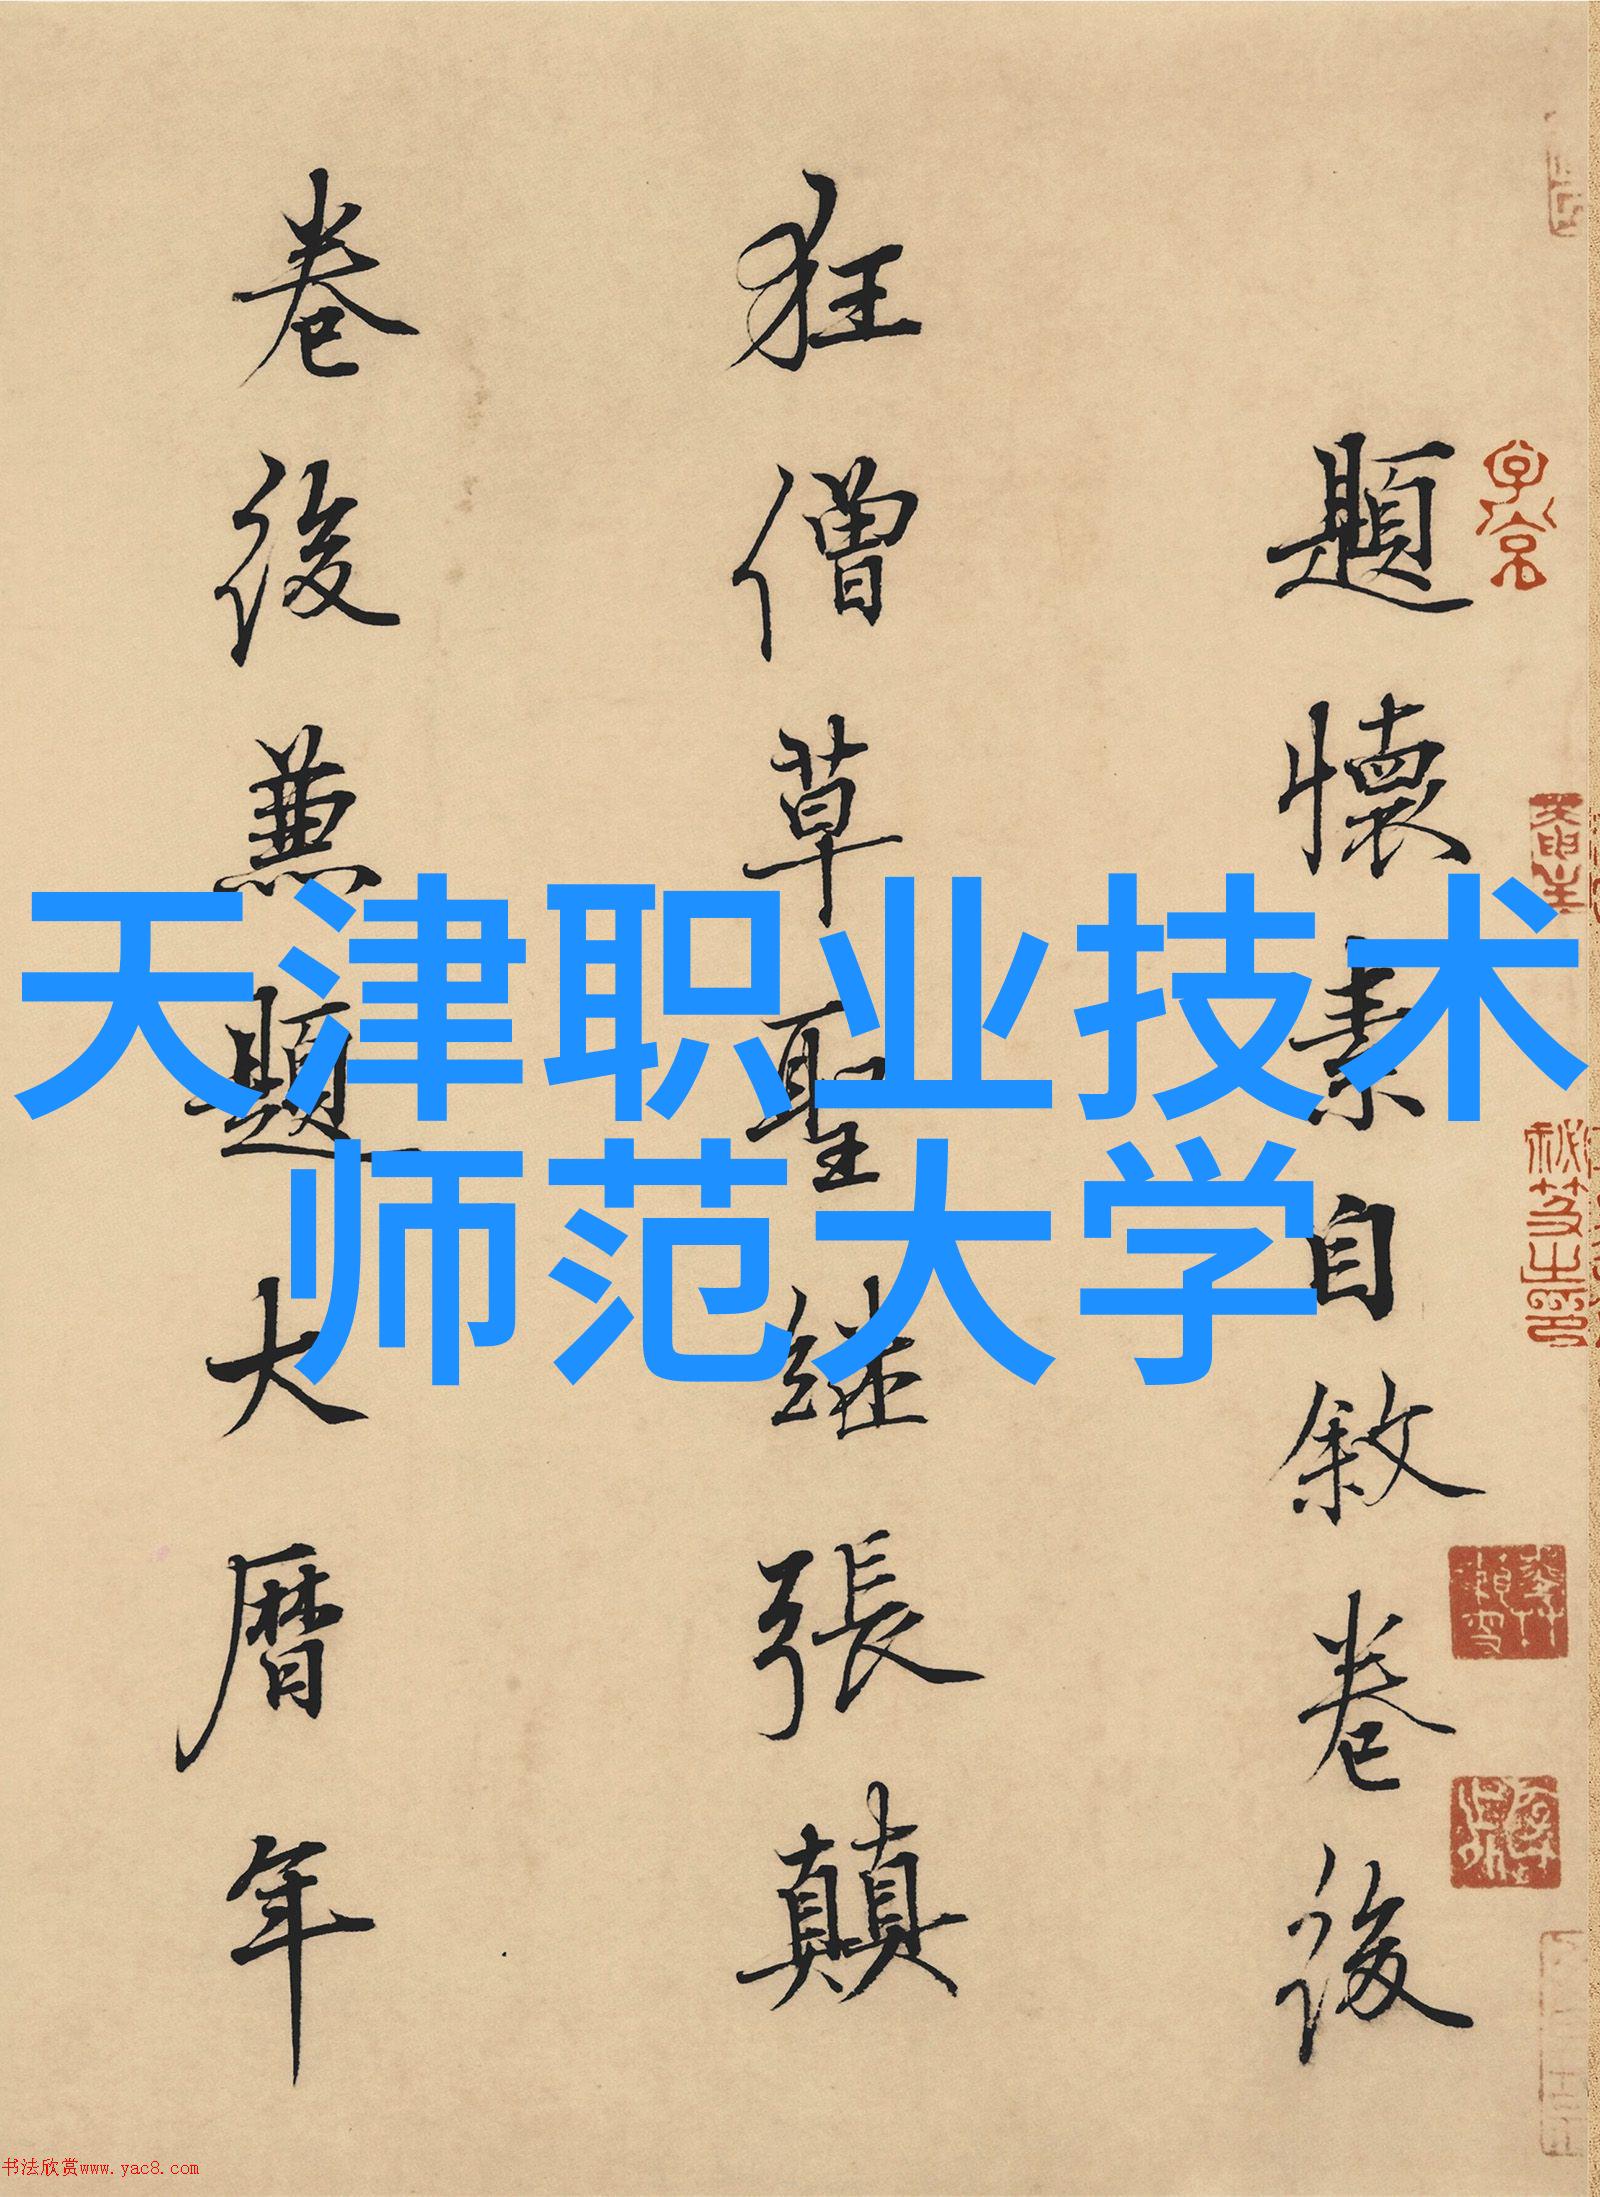 天津职业技术
师范大学
題懷素自敘卷後
狂僧草聖继張顛
卷後兼題大曆年
书法欣赏www.yac8.com